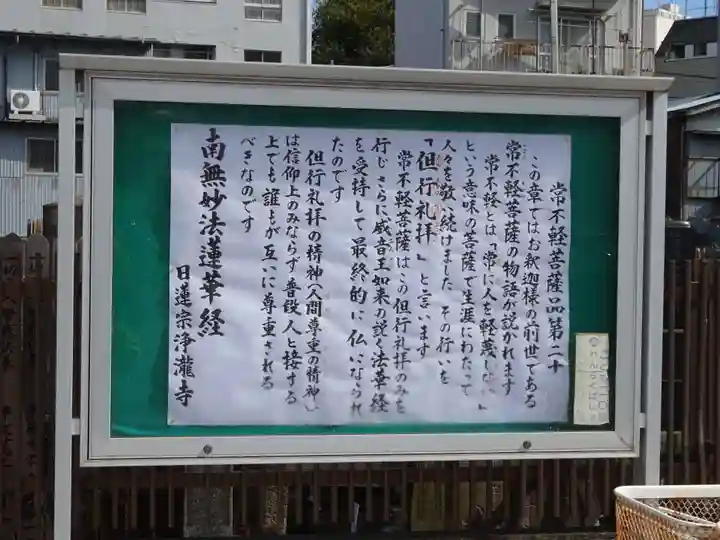 常不軽菩薩品第二十
この章ではお釈迦様の前世である
常不軽菩薩の物語が説かれます
常不軽とは「常に人を軽蔑しない」
という意味の菩薩で生涯にわたって
人々を敬い続けました その行いを
「但行礼拝」と言います
常不軽菩薩はこの但行礼拝のみを
行じ さらに威音王如来の説く法華経
を受持して最終的に仏になられ
たのです
但行礼拝の精神(人間尊重の精神)
は信仰上のみならず普段人と接する
上でも誰もが互いに尊重される
べきなのです
南無妙法蓮華経
日蓮宗浄瀧寺